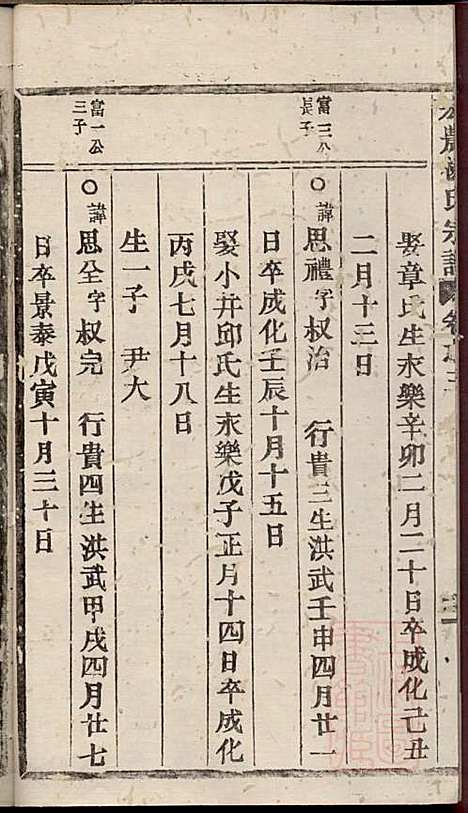 氏宗譜 卷之三
娶章氏生永樂辛卯二月二十日卒成化己丑
二月十三日
富三公長子
○諱思禮字叔治 行貴三生洪武壬申四月廿一
日卒成化壬辰十月十五日
娶小井邱氏生永樂戊子正月十四日卒成化
丙戌七月十八日
生一子 尹大
富一公三子
○諱思全字叔完 行貴四生洪武甲戌四月廿七
日卒景泰戊寅十月三十日